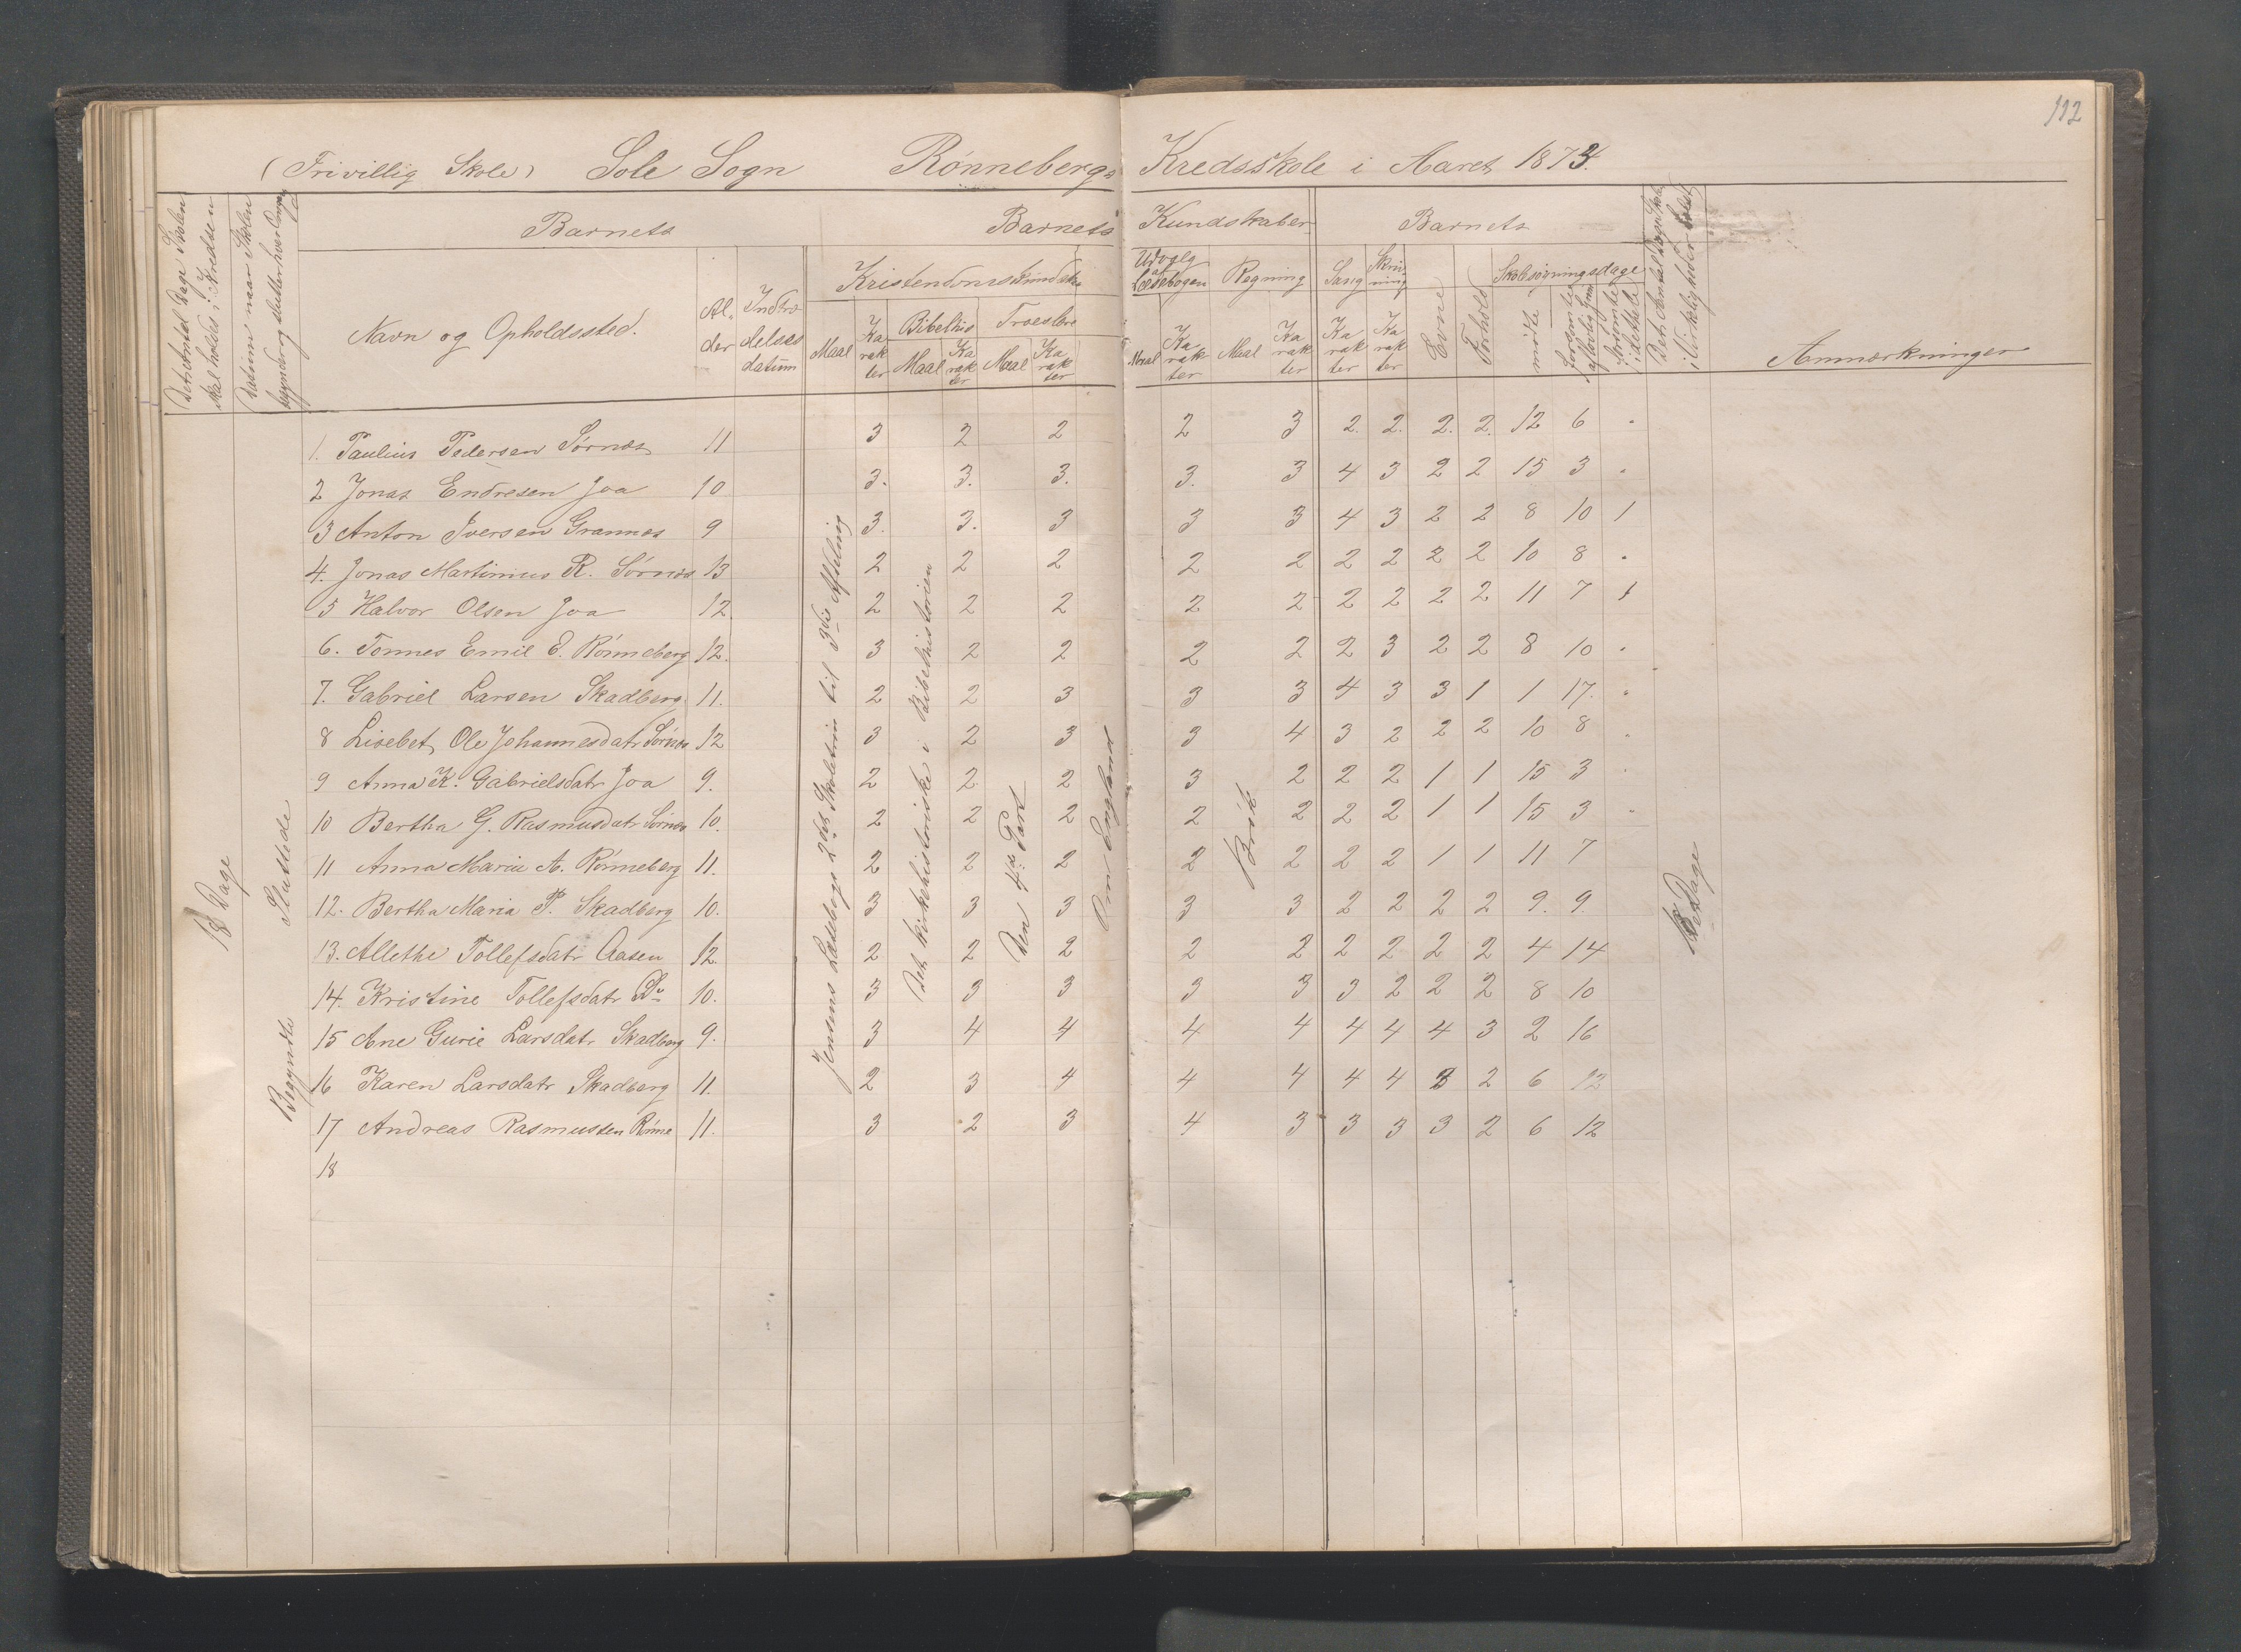 112
(Frivillig Skole) Sole Sogn Rønnebergs Kredsskole i Aaret 1874.
Det Antal Dage Skolen skal holdes i Kredsen
Datum naar Skolen begynder og slutter hver Omgang
Barnets
Navn og Opholdssted.
Al-der
Indtrædelsesdatum
Barnets Kundskaber
Kristendomskundskab
Maal
Karakter
Bibelhis
Maal
Karakter
Troeslære
Maal
Karakter
Udvalg af Læsebogen
Maal
Karakter
Regning
Maal
Karakter
Sang
Karakter
Skrivning
Karakter
Barnets
Evne
Forhold
Skolesøgningsdage
mødte
forsømte af lovlig Grund
forsømte i det hele
Det Antal Dage Skolen i Virkeligheden er holdt
Anmærkninger
1. Paulius Pedersen Sørnes 11 3 2 2 2 3 2. 2. 2. 2. 12 6 "
2 Jonas Endresen Joa 10 3. 3. 3. 3. 3 4 3 2 2 15 3 "
3 Anton Iversen Grannes 9 3. 3. 3 3 3 4 3 2 2 8 10 1
4. Jonas Martinius R. Sørnes 13 2 2 2 2 2 2 2 2 2 10 8 "
5 Halvor Olsen Joa 12. 2 2 2 2 2 2 2 2 2 11 7 1
6. Tønnes Emil E. Rønneberg 12. 3 2 2 2 2 2 3 2 2 8 10 "
7. Gabriel Larsen Skadberg 11. 2 2 3 3 3 4 3 3 1 1 17. "
8 Lisebet Ole Johannesdatr Sørnes 12 3 2 3 3 4 3 2 2 2 10 8 "
9 Anna K. Gabrielsdatr Joa 9. 2 2 2 3 2 2 2 1 1 15 3 "
10 Bertha G. Rasmusdatr Sørnes 10. 2 2 2 2 2 2 2 1 1 15 3 "
11 Anna Maria A. Rønneberg 11. 2 2 2 2 2 2 2 1 1 11 7
12. Bertha Maria P. Skadberg 10. 3 3 3 3 3 2 2 2 2 9. 9.
13. Allethe Tollefsdatr Aasen 12. 2 2 2 2 2 2 2 2 2 4 14
14. Kristine Tollefsdatr Do 10. 3 3 3 3 3 3 2 2 2 8 10
15 Ane Gurie Larsdatr Skadberg 9. 3 4 4 4 4 4 4 4 3 2 16
16 Karen Larsdatr Skadberg 11. 2 3 4 4 4 4 4 3 2 6 12
17 Andreas Rasmussen Rønne 11. 3 2 3 4 3 3 3 3 2 6 12
18
18 Dage
Begyndte
Sluttede
Jensens Læsebogs 2det Skoletrin til 3die Afdeling
Det kirkehistoriske i Bibelhistorien
Den 4de Part
Om England
Brøk
18 Dage